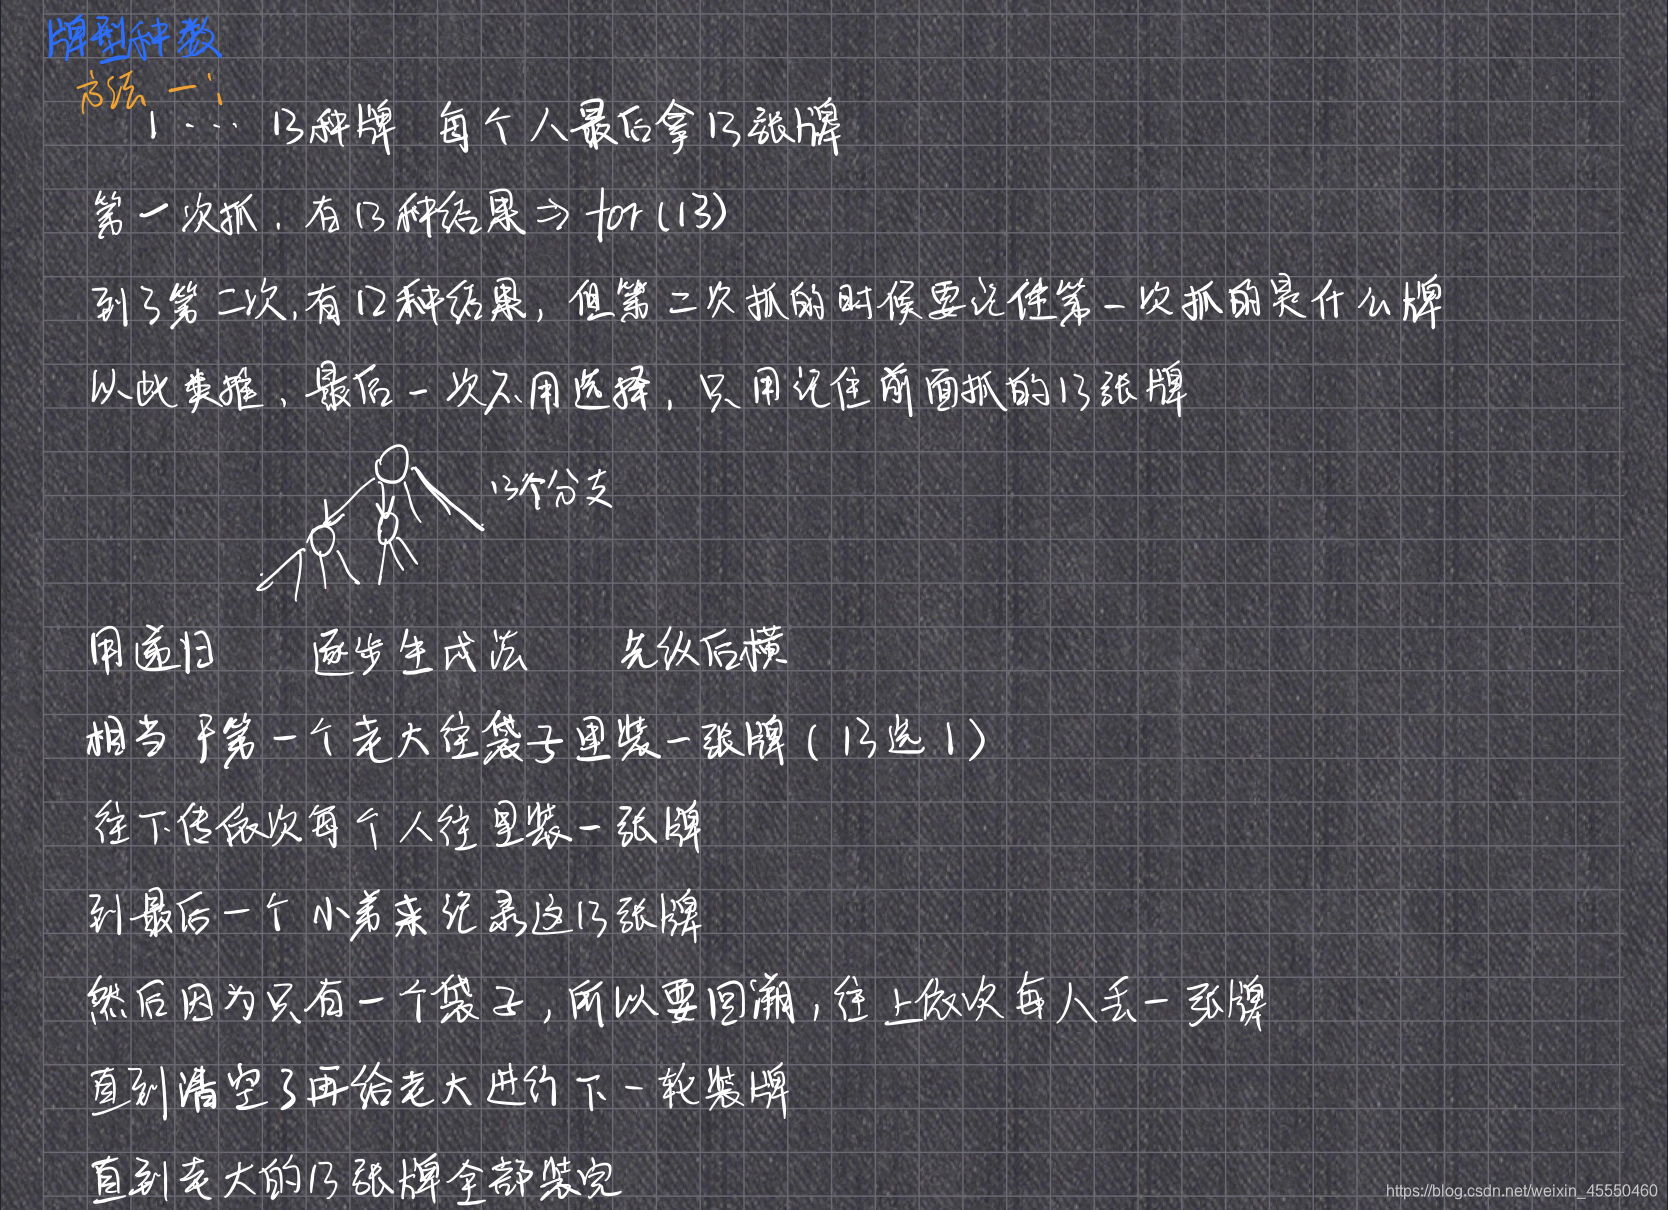 牌型种数
方法一：
1 ... 13种牌 每个人最后拿13张牌
第一次抓，有13种结果 => for(13)
到了第二次，有12种结果，但第二次抓的时候要记住第一次抓的是什么牌
以此类推，最后一次不用选择，只用记住前面抓的13张牌
13个分支
用递归 逐步生成法 先纵后横
相当于第一个老大往袋子里装一张牌(13选1)
往下传依次每个人往里装一张牌
到最后一个小弟来纪录这13张牌
然后因为只有一个袋子，所以要回溯，往上依次每人丢一张牌
直到清空了再给老大进行下一轮装牌
直到老大的13张牌全部装完
https://blog.csdn.net/weixin_45550460